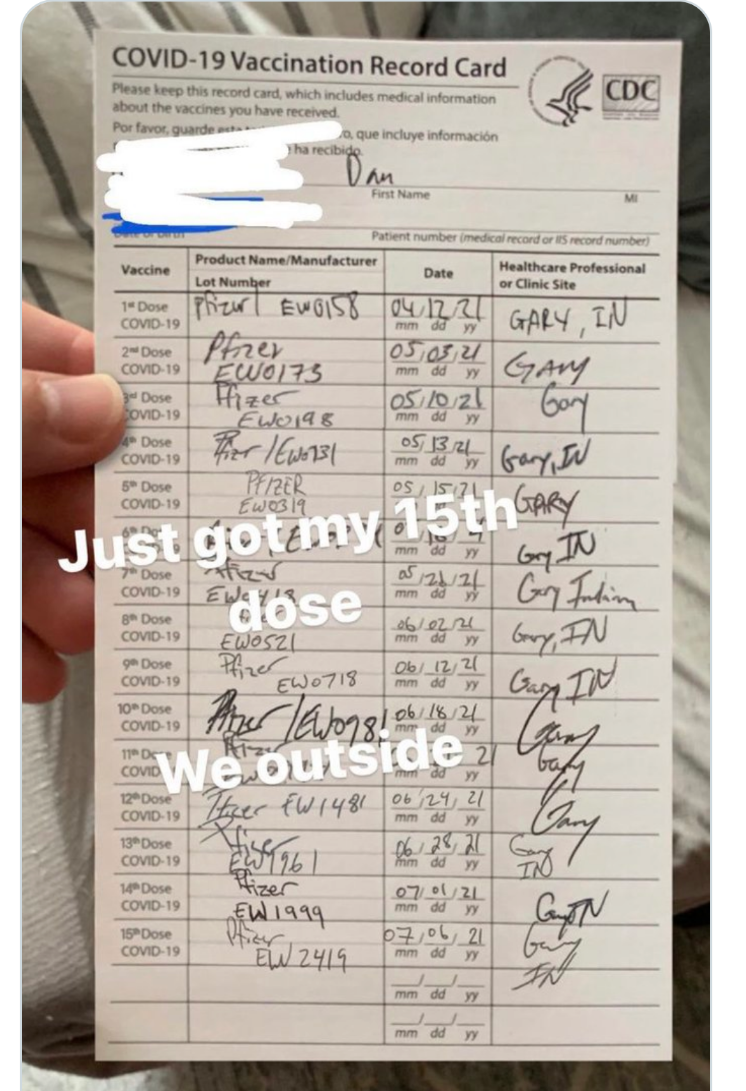 COVID-19 Vaccination Record Card
Please keep this record card, which includes medical information
about the vaccines you have received.
CDC
Por favor, guarde que incluye información
ha recibido.
Dan
First Name MI
Patient number (medical record or IIS record number)
Vaccine Product Name/Manufacturer Date Healthcare Professional
Lot Number or Clinic Site
1st Dose Pfizer EW0158 04/12/21 GARY, IN
COVID-19 mm dd yy
2nd Dose Pfizer 05/03/21 GARY
COVID-19 EW0173 mm dd yy
3rd Dose Pfizer 05/10/21 Gary
COVID-19 EW0198 mm dd yy
4th Dose Pfizer/EW0731 05/13/21 Gary, IN
COVID-19 mm dd yy
5th Dose PFIZER 05/15/21 GARY
COVID-19 EW0319 mm dd yy
Just got my 15th
Gary IN
mm dd yy
7th Dose Pfizer 05/21/21 Gary Indiana
COVID-19 mm dd yy
dose
8th Dose 06/02/21 Gary, IN
COVID-19 EW0521 mm dd yy
9th Dose Pfizer 06/12/21 Gary IN
COVID-19 EW0718 mm dd yy
10th Dose Pfizer/EW0981 06/18/21 Gary
COVID-19 mm dd yy
We outside
11th 21 Gary
COVID mm dd yy
12th Dose Pfizer EW1481 06/24/21 Gary
COVID-19 mm dd yy
13th Dose Pfizer 06/28/21 Gary
COVID-19 mm dd yy IN
14th Dose Pfizer 07/01/21 Gary IN
COVID-19 EW1999 mm dd yy
15th Dose Pfizer 07/06/21 Gary
COVID-19 EW2419 mm dd yy IN
mm dd yy
mm dd yy